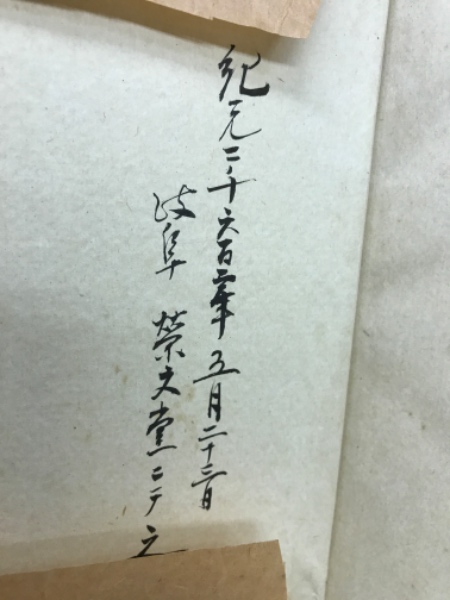 紀元二千六百二年五月二十三日
岐阜 榮文堂ニテ 之